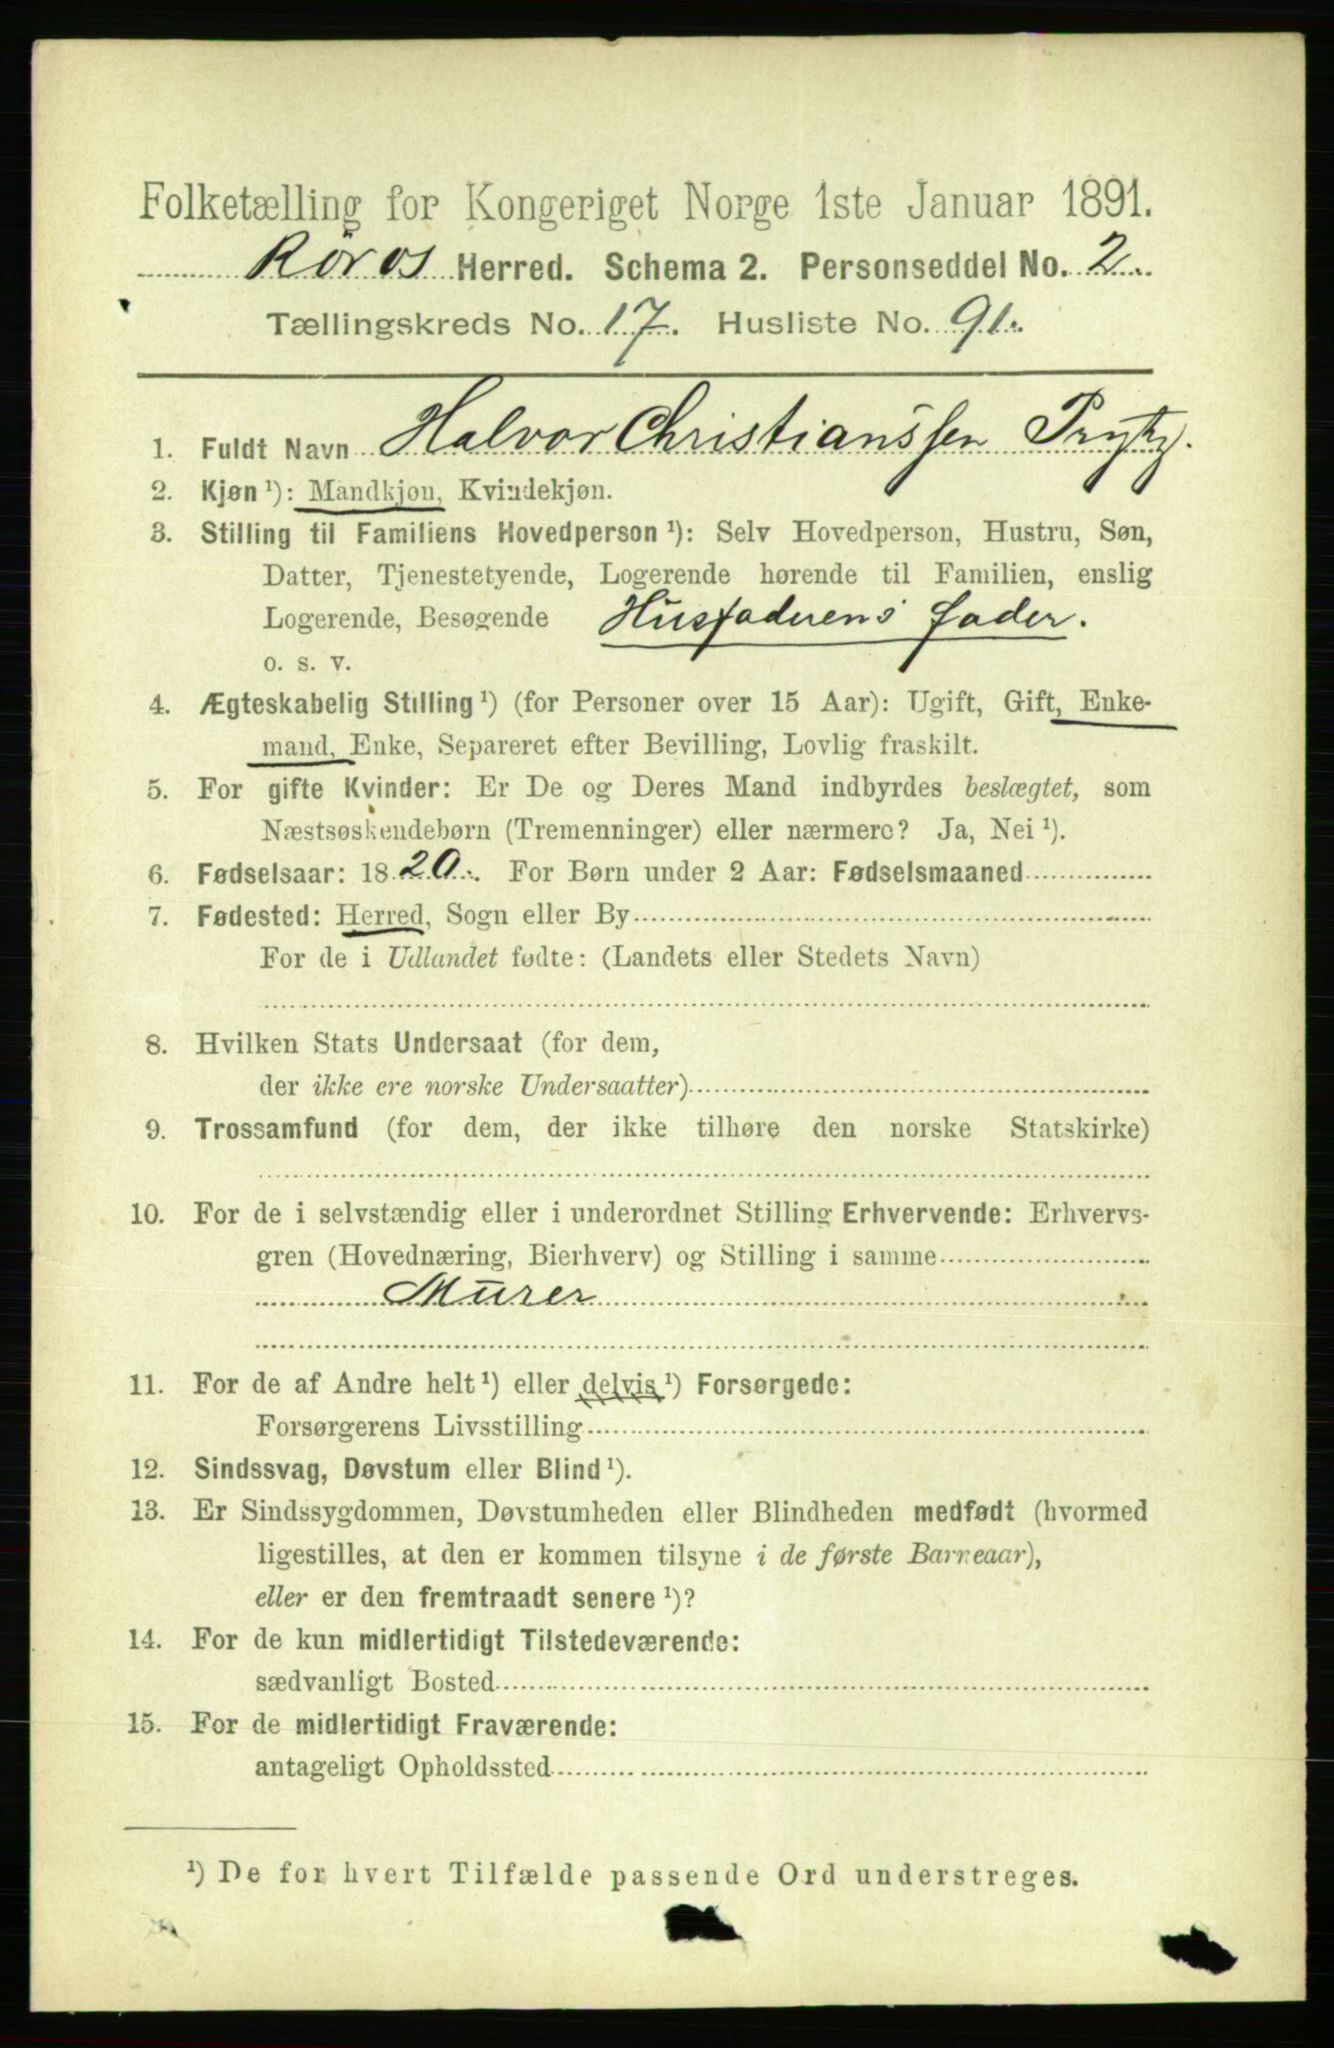 Folketælling for Kongeriget Norge 1ste Januar 1891.
Röros Herred. Schema 2. Personseddel No. 2.
Tællingskreds No. 17. Husliste No. 91.
1. Fuldt Navn Halvor Christianssen Prytz.
2. Kjøn ¹): Mandkjøn, Kvindekjøn.
3. Stilling til Familiens Hovedperson ¹): Selv Hovedperson, Hustru, Søn,
Datter, Tjenestetyende, Logerende hørende til Familien, enslig
Logerende, Besøgende Husfaderens fader.
o. s. v.
4. Ægteskabelig Stilling ¹) (for Personer over 15 Aar): Ugift, Gift, Enke-
mand, Enke, Separeret efter Bevilling, Lovlig fraskilt.
5. For gifte Kvinder: Er De og Deres Mand indbyrdes beslægtet, som
Næstsøskendebørn (Tremenninger) eller nærmere? Ja, Nei ¹).
6. Fødselsaar: 1820. For Børn under 2 Aar: Fødselsmaaned
7. Fødested: Herred, Sogn eller By
For de i Udlandet fødte: (Landets eller Stedets Navn)
8. Hvilken Stats Undersaat (for dem,
der ikke ere norske Undersaatter)
9. Trossamfund (for dem, der ikke tilhøre den norske Statskirke)
10. For de i selvstændig eller i underordnet Stilling Erhvervende: Erhvervs-
gren (Hovednæring, Bierhverv) og Stilling i samme
Murer
11. For de af Andre helt ¹) eller delvis ¹) Forsørgede:
Forsørgerens Livsstilling
12. Sindssvag, Døvstum eller Blind ¹).
13. Er Sindssygdommen, Døvstumheden eller Blindheden medfødt (hvormed
ligestilles, at den er kommen tilsyne i de første Barneaar),
eller er den fremtraadt senere ¹)?
14. For de kun midlertidigt Tilstedeværende:
sædvanligt Bosted
15. For de midlertidigt Fraværende:
antageligt Opholdssted
¹) De for hvert Tilfælde passende Ord understreges.